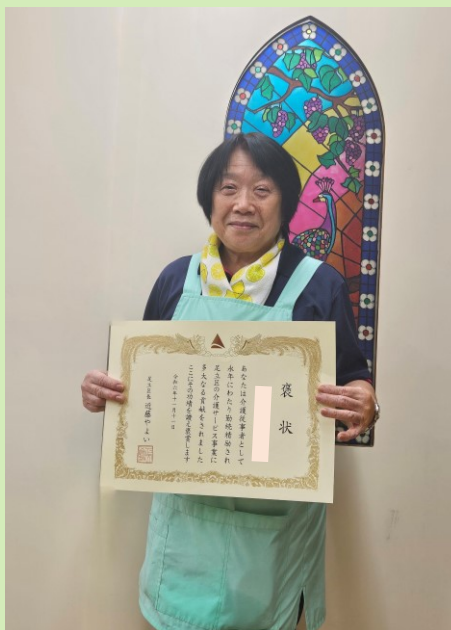 褒状
あなたは介護従事者として
永年にわたり勤続精励され
足立区の介護サービス事業に
多大なる貢献をされました
ここにその功績を讃え表賞します
令和六年十一月十一日
足立区長 近藤やよい